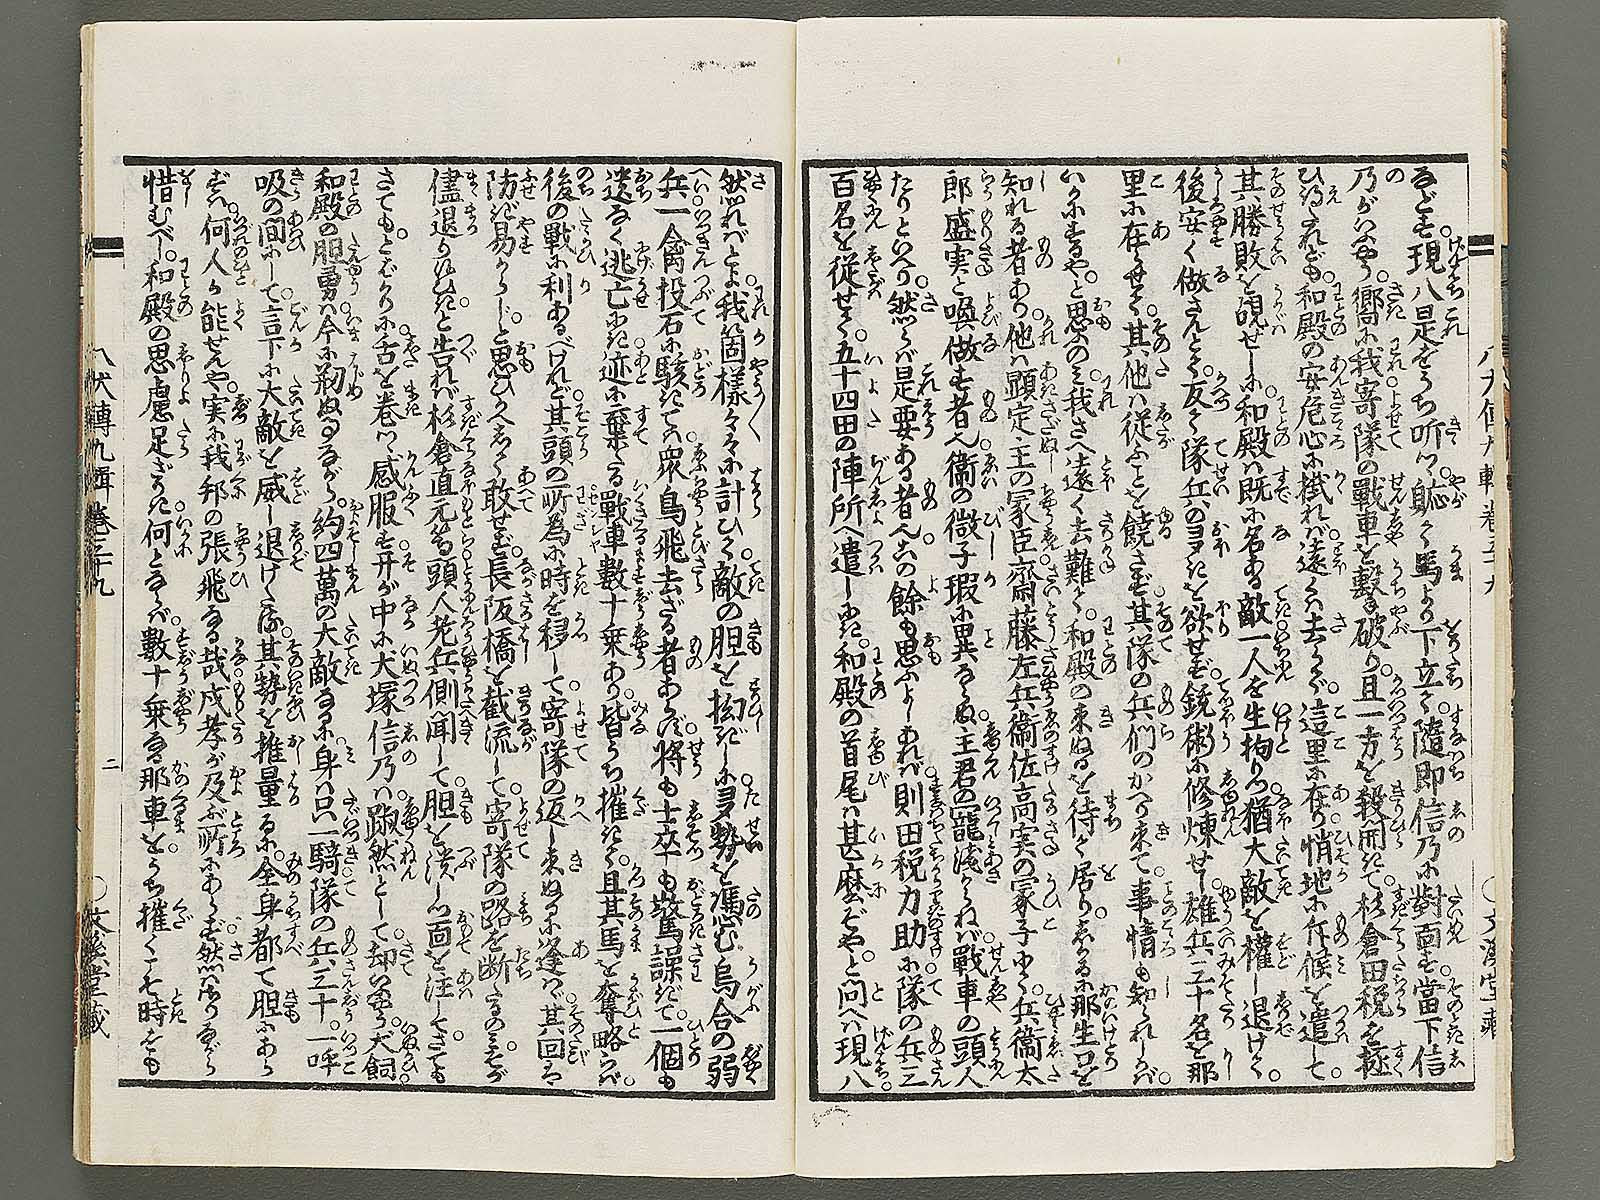 るども。現八是をうち听つ。軈て馬より下立て。随即信乃に對面す。當下信
乃がいふやう。嚮に我寄隊の戰車を撃破り。且一方を殺開きて。杉倉田税を拯
ひぬれども。和殿の安危心に掛れば。遠くは去らで這里に在り。悄地に斥候を遣して
其勝敗を覘せしに。和殿は既に名ある敵一人を生拘り。猶大敵を權し退けて。
後安く做さんとて。反て隊兵の多きを欲せず。銃術に修煉せし。雄兵三十名を那
里に在らせて。其他は從ふことを饒さず。其隊の兵們のかへり来て。事情も知られしかば。
いかにするや。と思ふのみ。我さへ遠く去難て。和殿の来ぬるを待て居り。しかるに那生口を
知れる者あり。他は顕定主の冢臣。齋藤左兵衛佐高実の冢子にて。兵衛太
郎盛実と喚做す者也。衞の嶶子瑕に異ならぬ。主君の寵淺からねば。戰車の頭人
たりといへり。然らば是要ある者也。この餘も思ふよしあれば。則田税力助に。隊の兵三
百名を從せて。五十四田の陣所へ遣しにき。和殿の首尾は甚麼ぞや。と問へば現八。
然ればとよ我箇様々々に計ひて。敵の胆を拗ぎしに。多勢を憑む烏合の弱
兵。一禽投石に駭きては。衆鳥飛去ざる者あらず。將も士卒も驚譟ぎて。一個も
遺なく逃亡にき。迹に棄たる戰車數十乗あり。皆うち摧きて。且其馬を奪略らば。
後の戰に利あるべけれど。其頭の所為に時を移して。寄隊の返し来ぬるに逢はゞ。其回は
防ぎ易からじと思ひかへして。敢せず。長阪橋を截流して。寄隊の路を断たるのみ。
儘退りゆひき。と告れば杉倉直元等。頭人老兵側聞して。胆を潰しつ面を注して。さても
さても。とばかりに。舌を巻つゝ感服す。开が中に大塚信乃は。蹴然として却いふやう。犬飼
和殿の胆勇は。今に創ぬ事ながら。約四萬の大敵なるに。身は只一騎隊の兵三十。一呼
吸の間にして。言下に大敵を威し退けたる。其勢を推量るに。全身都て胆にあら
ずは。何人か能せんや。実に我邦の張飛なる哉。成孝が及ぶ所にあらず。然りながら
惜むべし。和殿の思慮足ざりき。何となれば。數十乗なる那車を。うち摧くこそ時をも
八犬傳九輯巻三十九
○文溪堂藏
八犬傳九輯巻三十九
二
○文溪堂藏